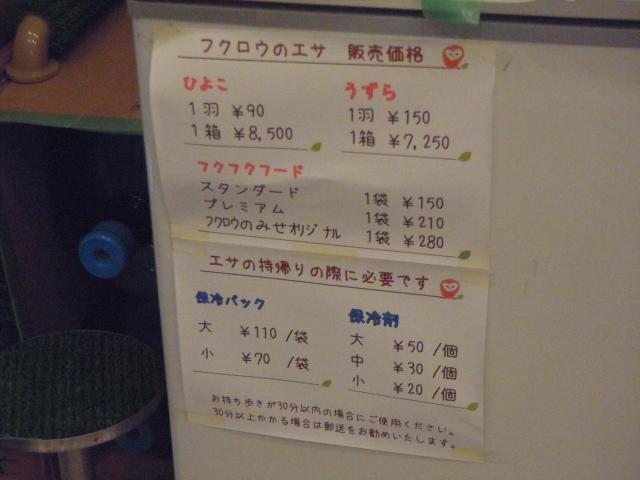 フクロウのエサ 販売価格
ひよこ
1羽 ¥90
1箱 ¥8,500
うずら
1羽 ¥150
1箱 ¥7,250
フクフクフード
スタンダード 1袋 ¥150
プレミアム 1袋 ¥210
フクロウのみせオリジナル 1袋 ¥280
エサの持帰りの際に必要です
保冷パック
大 ¥110 /袋
小 ¥70 /袋
保冷剤
大 ¥50 /個
中 ¥30 /個
小 ¥20 /個
お持ち歩きが30分以内の場合にご使用ください。
30分以上かかる場合は郵送をお勧めいたします。